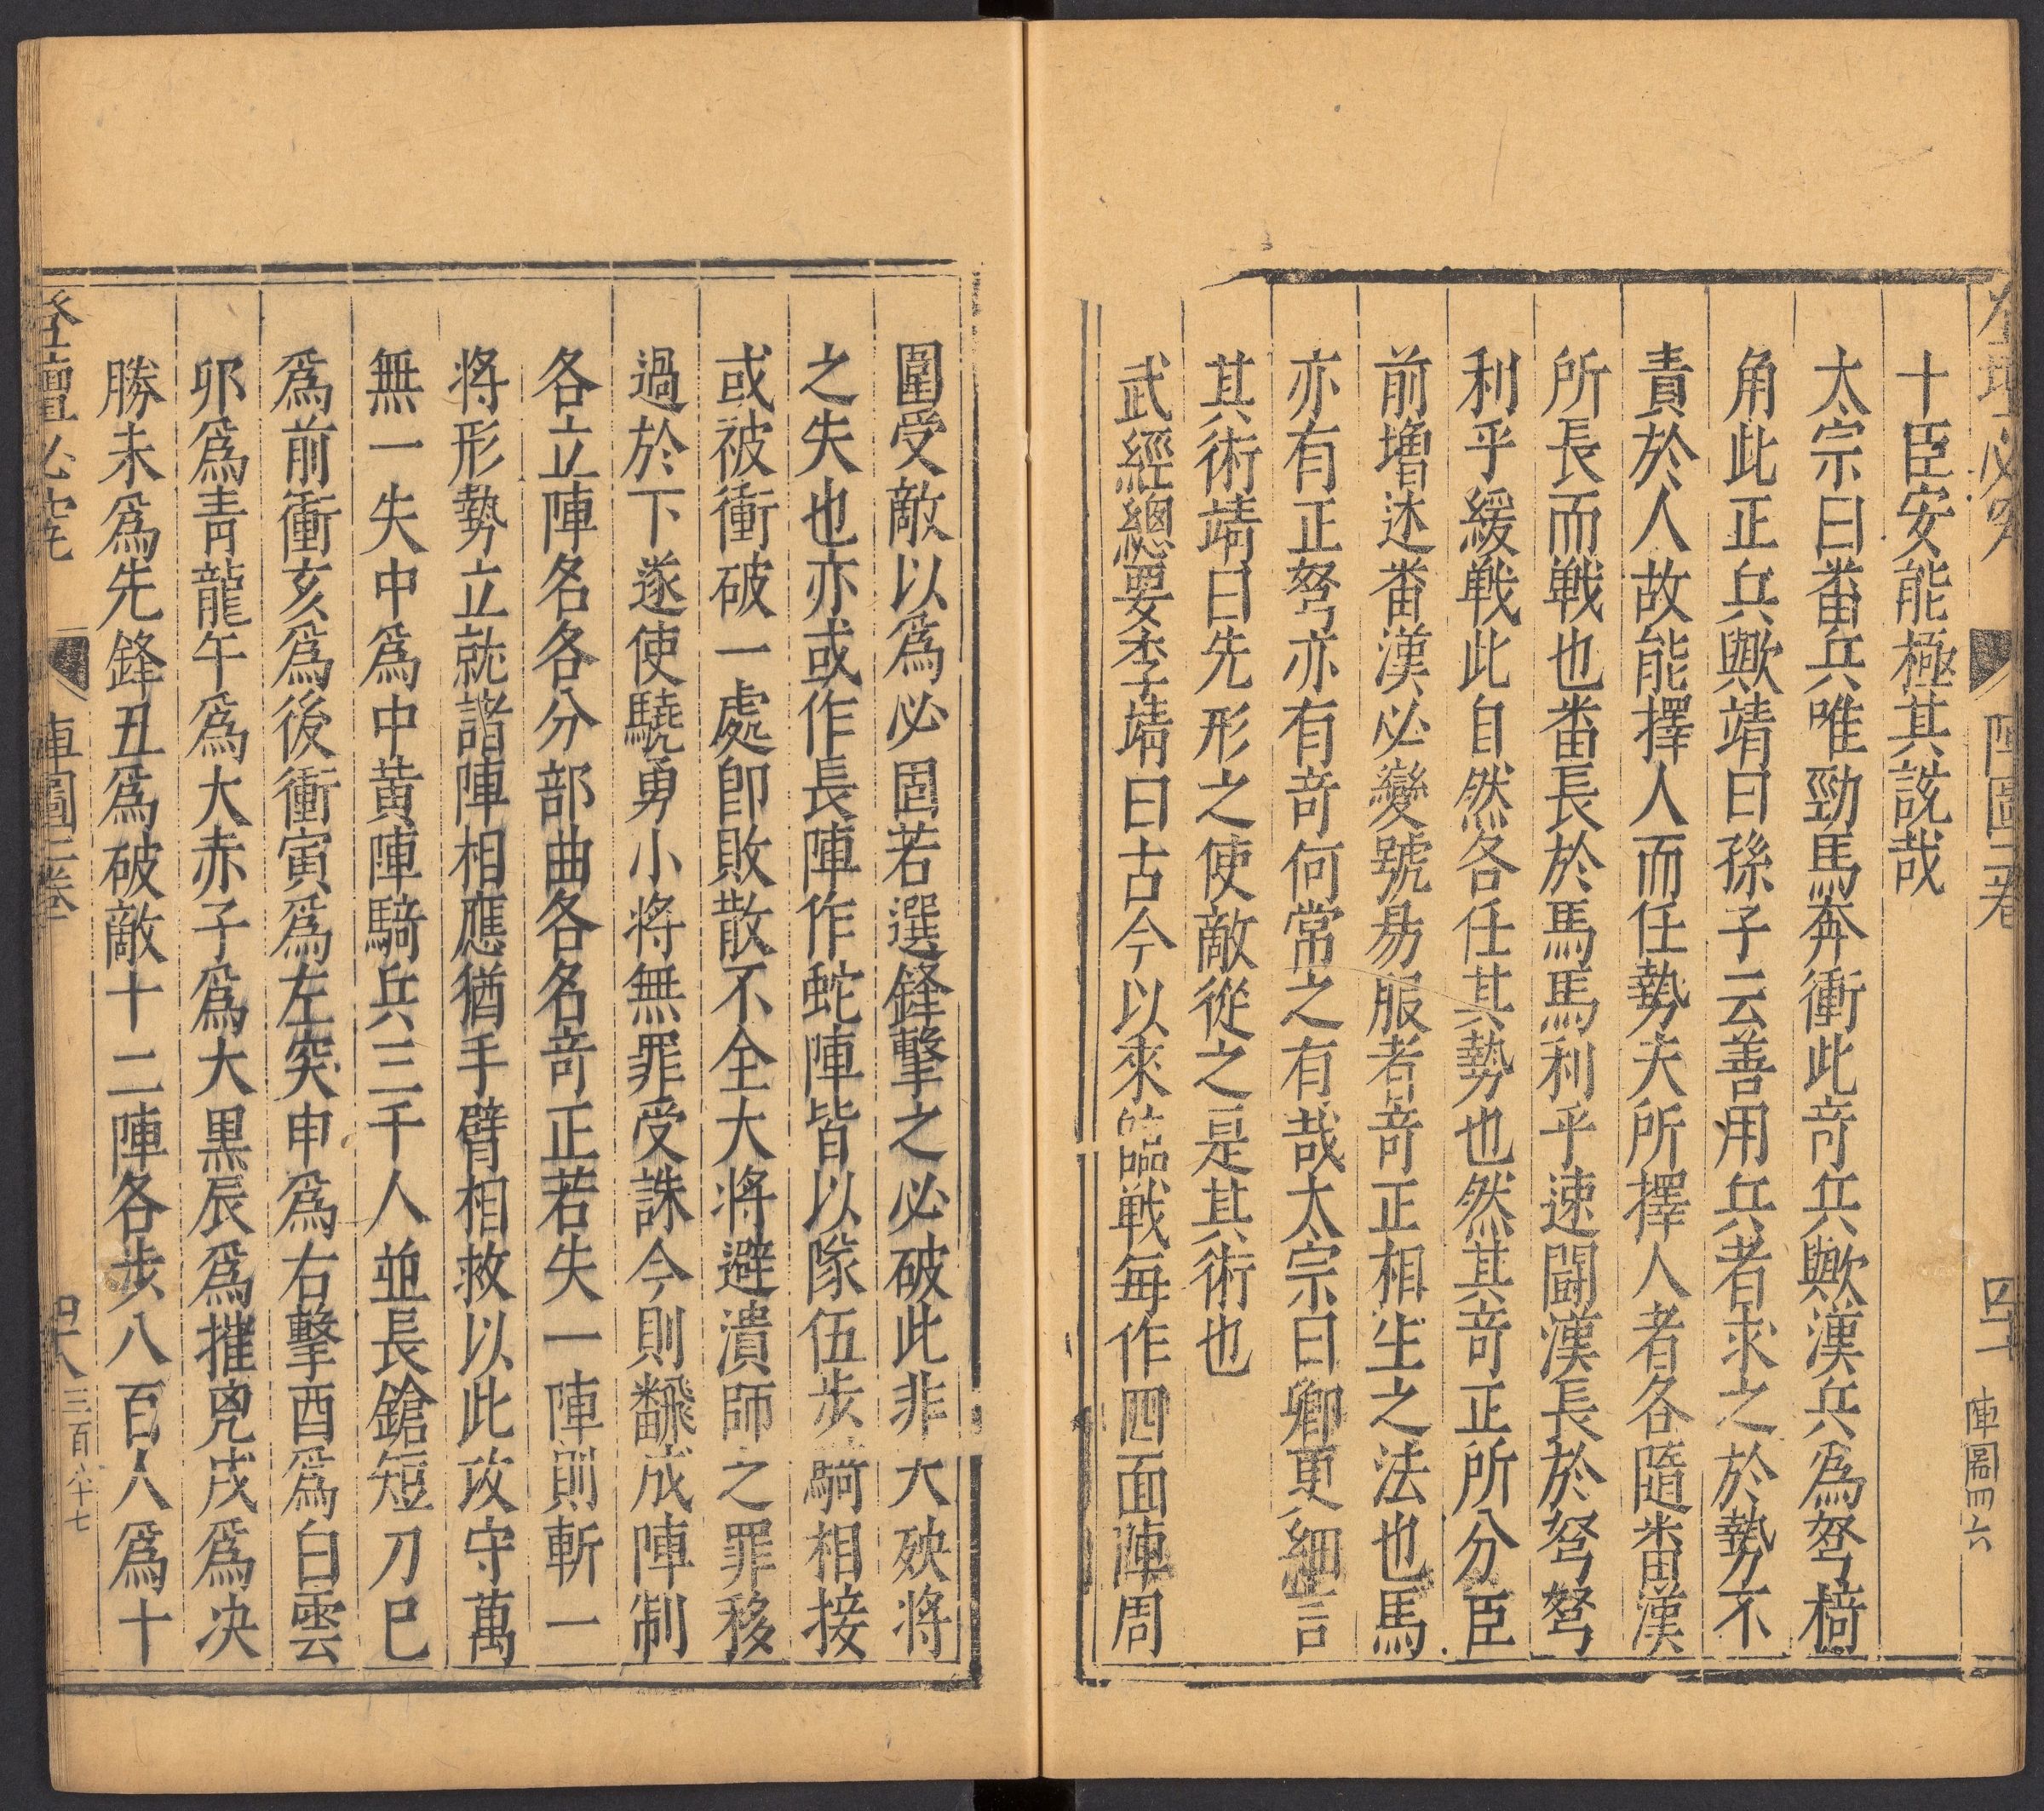 陣圖二卷
陣圖四六
十臣安能極其說哉
太宗曰畨兵唯勁馬奔衝此竒兵歟漢兵為弩𢺵
角此正兵歟靖曰孫子云善用兵者求之於勢不
責於人故能擇人而任勢夫所擇人者各隨畨漢
所長而戰也畨長於馬馬利乎速鬭漢長於弩弩
利乎緩戰此自然各任其勢也然其竒正所分臣
前增述畨漢必變號易服者竒正相生之法也馬
亦有正弩亦有竒何常之有哉太宗曰卿更細言
其術靖曰先形之使敵從之是其術也
武經總要李靖曰古今以來臨戰每作四面陣周
圍受敵以為必固若選鋒擊之必破此非大殃將
之失也亦或作長陣作蛇陣皆以隊伍步騎相接
或被衝破一處即敗散不全大將避潰師之罪移
過於下遂使驍勇小將無罪受誅今則飜成陣制
各立陣名各分部曲各名竒正若失一陣則斬一
將形勢立就諸陣相應猶手臂相救以此攻守萬
無一失中為中黃陣騎兵三千人並長鎗短刀巳
為前衝亥為後衝寅為左突申為右擊酉為白雲
卯為青龍午為大赤子為大黑辰為摧兇戌為决
勝未為先鋒丑為破敵十二陣各步八百人為十
登壇必究 陣圖二卷 四八 三百八十七